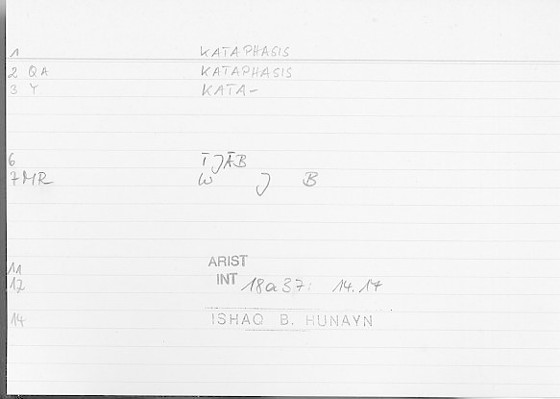 1 KATAPHASIS
2 QA KATAPHASIS
3 Y KATA-
6 ĪJĀB
7 MR W J B
11 ARIST
12 INT 18a37: 14.17
14 ISHAQ B. HUNAYN